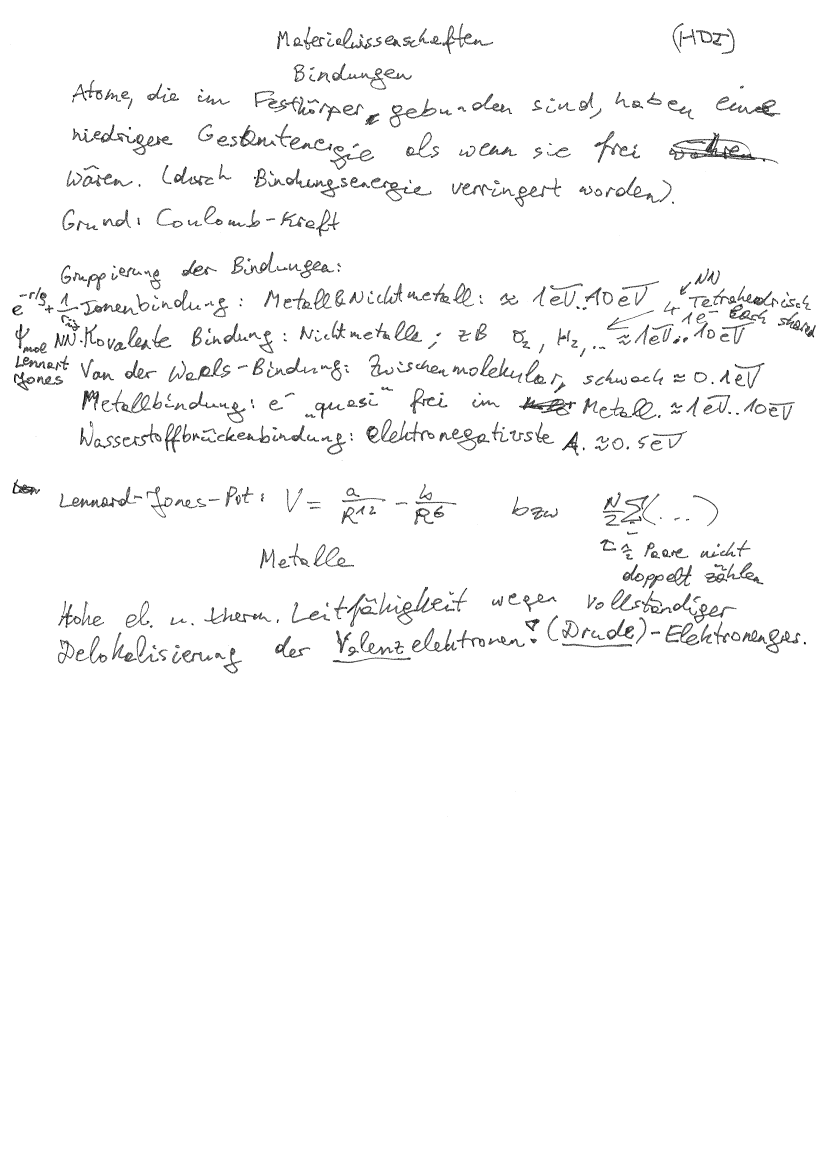 Materialwissenschaften (HDI)
Bindungen
Atome, die im Festkörper, gebunden sind, haben eine
niedrigere Gesamtenergie als wenn sie frei
wären. (durch Bindungsenergie verringert worden).
Grund: Coulomb-Kraft
Gruppierung der Bindungen:
↙NN
e^-r/ρ + 1/r_ij Ionenbindung: Metall&Nichtmetall: ≈ 1eV..10eV 4 Tetrahedrisch
1e⁻ each shared
ψ_mol NN. Kovalente Bindung: Nichtmetalle; zB O₂, H₂, .. ≈1eV..10eV
Lennart Jones Van der Waals-Bindung: Zwischenmolekular, schwach ≈ 0.1eV
Metallbindung: e⁻ „quasi“ frei im Metall. ≈1eV..10eV
Wasserstoffbrückenbindung: elektronegativste A. ≈0.5eV
Lennard-Jones-Pot: V = a/R^12 - b/R^6 bzw N/2 Σ(...)
Paare nicht
doppelt zählen
Metalle
Hohe el. u. therm. Leitfähigkeit wegen vollständiger
Delokalisierung der Valenzelektronen! (Drude)-Elektronengas.